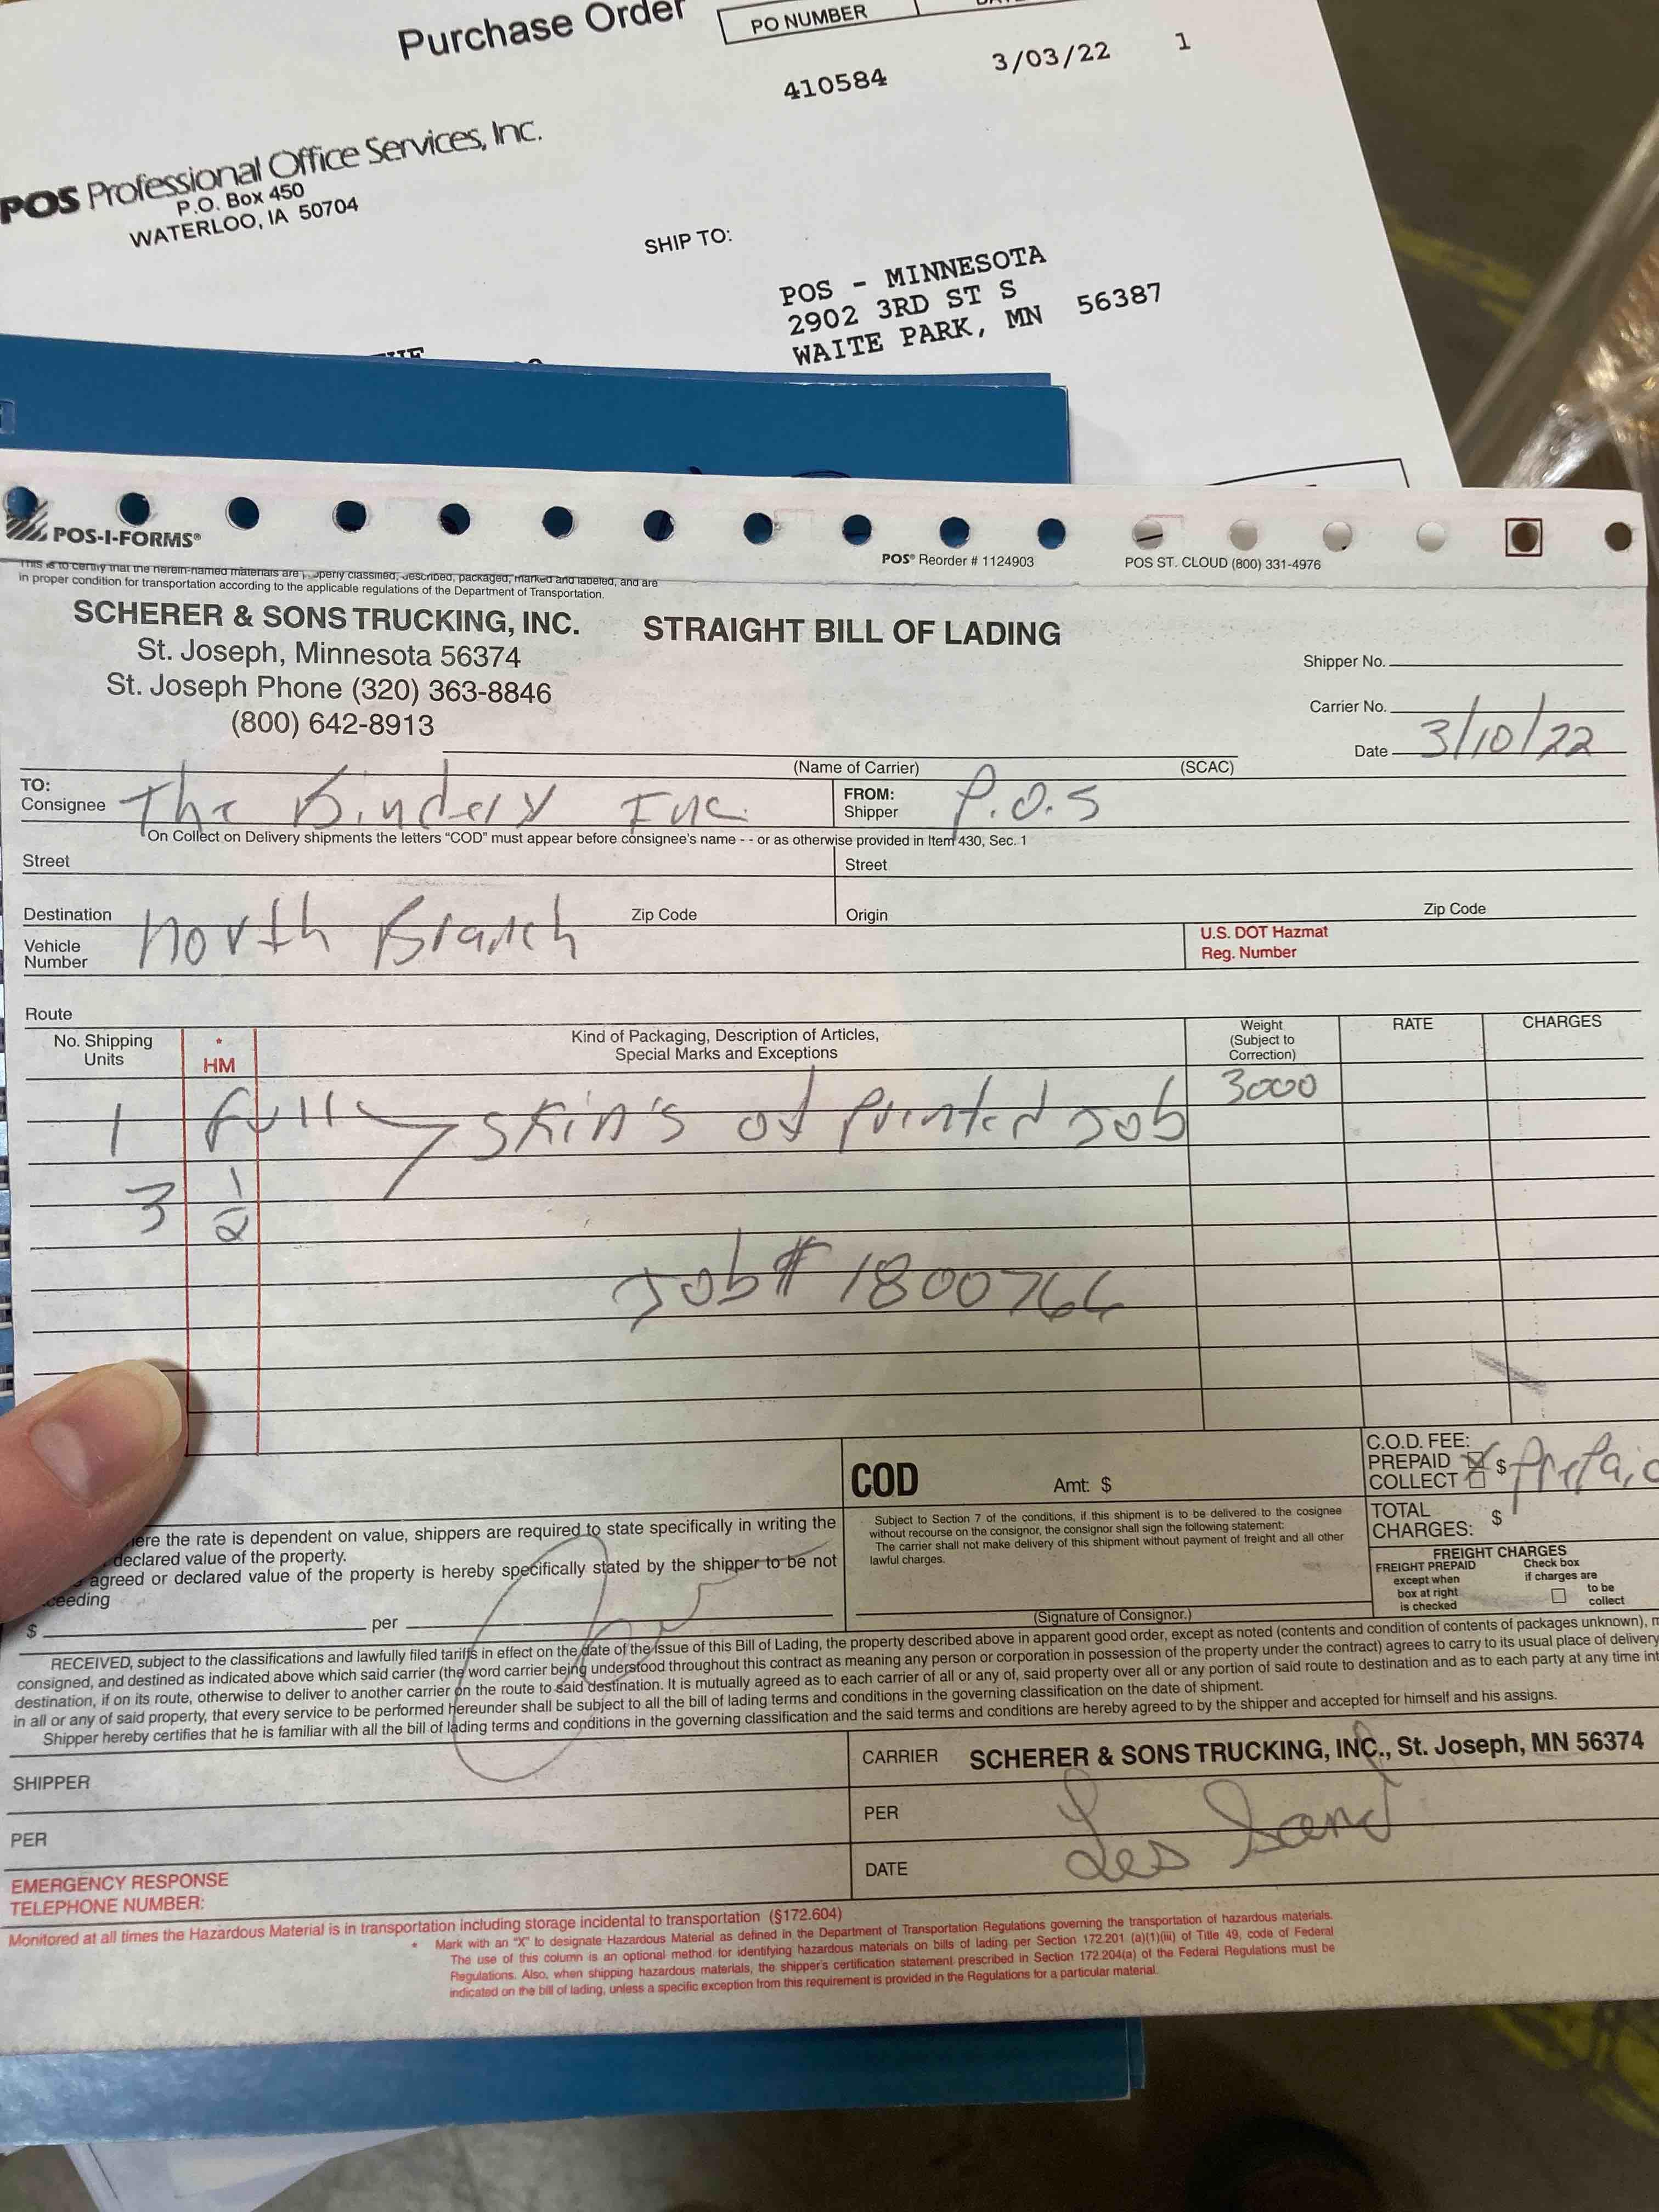 Purchase Order
PO NUMBER
410584 3/03/22 1
POS Professional Office Services, Inc.
P.O. Box 450
WATERLOO, IA 50704
SHIP TO:
POS - MINNESOTA
2902 3RD ST S
WAITE PARK, MN 56387
POS-I-FORMS®
POS® Reorder # 1124903
POS ST. CLOUD (800) 331-4976
This is to certify that the herein-named materials are properly classified, described, packaged, marked and labeled, and are
in proper condition for transportation according to the applicable regulations of the Department of Transportation.
SCHERER & SONS TRUCKING, INC. STRAIGHT BILL OF LADING
St. Joseph, Minnesota 56374
St. Joseph Phone (320) 363-8846
(800) 642-8913
Shipper No.
Carrier No.
Date 3/10/22
(Name of Carrier) (SCAC)
TO:
Consignee The Bindery Inc.
FROM:
Shipper P.O.S
On Collect on Delivery shipments the letters "COD" must appear before consignee's name - - or as otherwise provided in Item 430, Sec. 1
Street Street
Destination North Branch Zip Code Origin Zip Code
Vehicle
Number
U.S. DOT Hazmat
Reg. Number
Route
No. Shipping
Units
*
HM
Kind of Packaging, Description of Articles,
Special Marks and Exceptions
Weight
(Subject to
Correction)
RATE
CHARGES
1 full skin's of printed Job 3000
3 1/2
Job# 1800766
COD Amt: $
C.O.D. FEE:
PREPAID $ Prepaid
COLLECT
TOTAL
CHARGES: $
ere the rate is dependent on value, shippers are required to state specifically in writing the
declared value of the property.
agreed or declared value of the property is hereby specifically stated by the shipper to be not
ceeding
$ per
Subject to Section 7 of the conditions, if this shipment is to be delivered to the cosignee
without recourse on the consignor, the consignor shall sign the following statement:
The carrier shall not make delivery of this shipment without payment of freight and all other
lawful charges.
(Signature of Consignor.)
FREIGHT CHARGES
FREIGHT PREPAID
except when
box at right
is checked
Check box
if charges are
to be
collect
RECEIVED, subject to the classifications and lawfully filed tariffs in effect on the date of the issue of this Bill of Lading, the property described above in apparent good order, except as noted (contents and condition of contents of packages unknown), m
consigned, and destined as indicated above which said carrier (the word carrier being understood throughout this contract as meaning any person or corporation in possession of the property under the contract) agrees to carry to its usual place of delivery
destination, if on its route, otherwise to deliver to another carrier on the route to said destination. It is mutually agreed as to each carrier of all or any of, said property over all or any portion of said route to destination and as to each party at any time int
in all or any of said property, that every service to be performed hereunder shall be subject to all the bill of lading terms and conditions in the governing classification on the date of shipment.
Shipper hereby certifies that he is familiar with all the bill of lading terms and conditions in the governing classification and the said terms and conditions are hereby agreed to by the shipper and accepted for himself and his assigns.
SHIPPER
PER
CARRIER SCHERER & SONS TRUCKING, INC., St. Joseph, MN 56374
PER
DATE
Les Sand
EMERGENCY RESPONSE
TELEPHONE NUMBER:
Monitored at all times the Hazardous Material is in transportation including storage incidental to transportation (§172.604)
* Mark with an "X" to designate Hazardous Material as defined in the Department of Transportation Regulations governing the transportation of hazardous materials.
The use of this column is an optional method for identifying hazardous materials on bills of lading per Section 172.201 (a)(1)(iii) of Title 49, code of Federal
Regulations. Also, when shipping hazardous materials, the shipper's certification statement prescribed in Section 172.204(a) of the Federal Regulations must be
indicated on the bill of lading, unless a specific exception from this requirement is provided in the Regulations for a particular material.